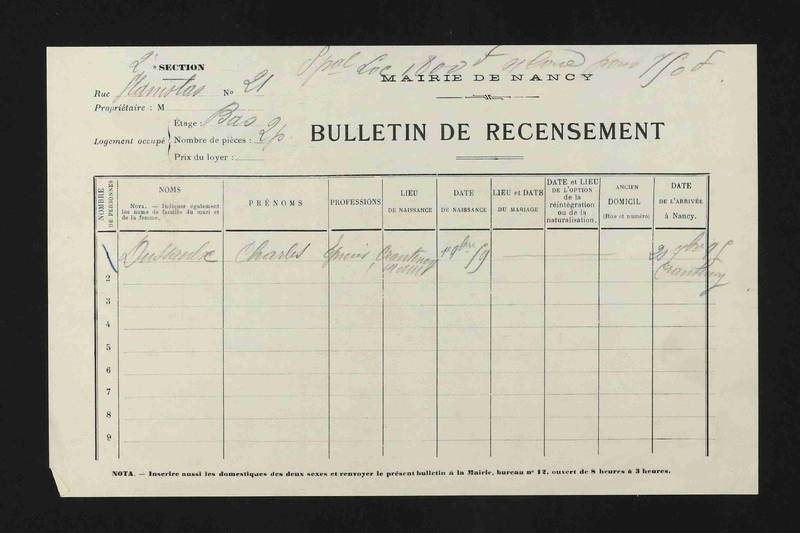 2e SECTION
MAIRIE DE NANCY
Rue No 21
Propriétaire : M
Étage : Bas
Logement occupé
Nombre de pièces : 2p
Prix du loyer :
BULLETIN DE RECENSEMENT
NOMBRE DE PERSONNES
NOMS
Nota. — Indiquer également les noms de famille du mari et de la femme.
PRÉNOMS
PROFESSIONS
LIEU DE NAISSANCE
DATE DE NAISSANCE
LIEU et DATE DU MARIAGE
DATE et LIEU DE L'OPTION de la réintégration ou de la naturalisation.
ANCIEN DOMICIL (Rue et numéro)
DATE DE L'ARRIVÉE à Nancy.
1 Charles
2
3
4
5
6
7
8
9
NOTA. — Inscrire aussi les domestiques des deux sexes et renvoyer le présent bulletin à la Mairie, bureau nº 12, ouvert de 8 heures à 3 heures.